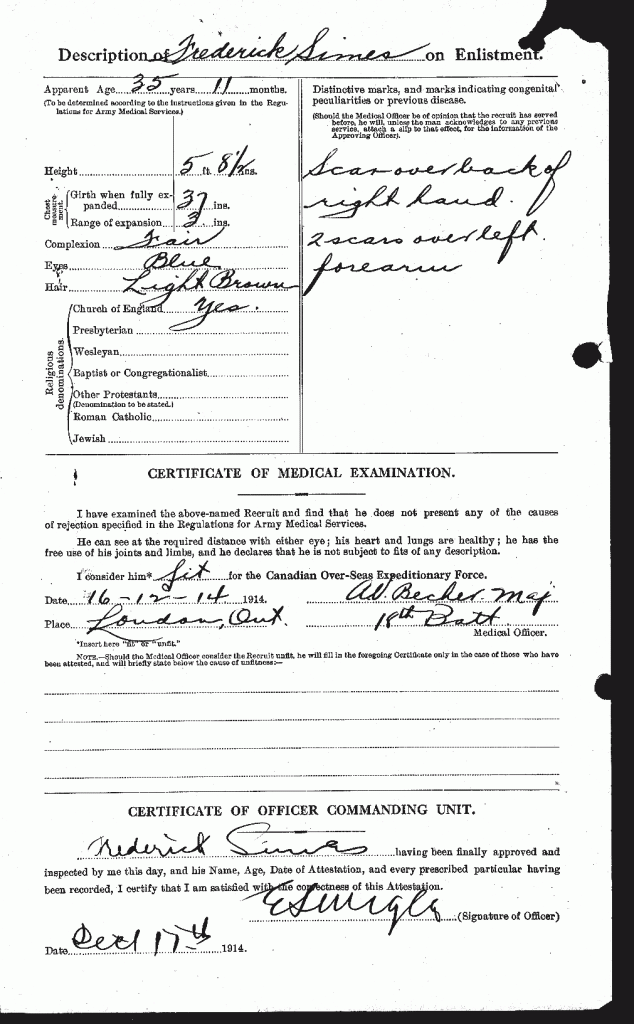 Description of Frederick Simes on Enlistment.
Apparent Age 35 years 11 months.
(To be determined according to the instructions given in the Regu-
lations for Army Medical Services.)
Height 5 ft. 8½ ins.
Chest
measure-
ment.
Girth when fully ex-
panded 37 ins.
Range of expansion 3 ins.
Complexion Fair
Eyes Blue
Hair Light Brown
Religious
denominations.
Church of England Yes.
Presbyterian
Wesleyan
Baptist or Congregationalist
Other Protestants
(Denomination to be stated.)
Roman Catholic
Jewish
Distinctive marks, and marks indicating congenital
peculiarities or previous disease.
(Should the Medical Officer be of opinion that the recruit has served
before, he will, unless the man acknowledges to any previous
service, attach a slip to that effect, for the information of the
Approving Officer).
Scar over back of
right hand.
2 scars over left
forearm
CERTIFICATE OF MEDICAL EXAMINATION.
I have examined the above-named Recruit and find that he does not present any of the causes
of rejection specified in the Regulations for Army Medical Services.
He can see at the required distance with either eye; his heart and lungs are healthy; he has the
free use of his joints and limbs, and he declares that he is not subject to fits of any description.
I consider him* fit for the Canadian Over-Seas Expeditionary Force.
Date 16-12-14 1914.
Place London, Ont.
Becher Maj
18th Batt
Medical Officer.
*Insert here "fit" or "unfit."
NOTE.—Should the Medical Officer consider the Recruit unfit, he will fill in the foregoing Certificate only in the case of those who have
been attested, and will briefly state below the cause of unfitness:—
CERTIFICATE OF OFFICER COMMANDING UNIT.
Frederick Simes having been finally approved and
inspected by me this day, and his Name, Age, Date of Attestation, and every prescribed particular having
been recorded, I certify that I am satisfied with the correctness of this Attestation.
E S Wigle (Signature of Officer)
Date Dec 17th 1914.